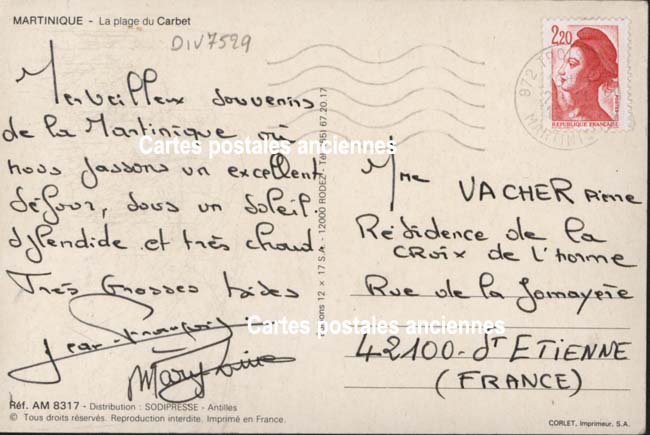 MARTINIQUE - La plage du Carbet
DIV7529
Merveilleux souvenirs
de la Martinique où
nous passons un excellent
séjour, sous un soleil
splendide et très chaud
Très Grosses bises
Jean-François
Maryline
Réf. AM 8317 - Distribution : SODIPRESSE - Antilles
© Tous droits réservés. Reproduction interdite. Imprimé en France.
12 x 17 S.A. - 12000 RODEZ - Tél. (65) 67.20.17
2,20
REPUBLIQUE FRANÇAISE
972
MARTINIQUE
Mme VACHER
Résidence de la
CROIX de L'homme
Rue de la Jomayère
42100 - ST ETIENNE
(FRANCE)
CORLET, Imprimeur, S.A.
Cartes postales anciennes
Cartes postales anciennes